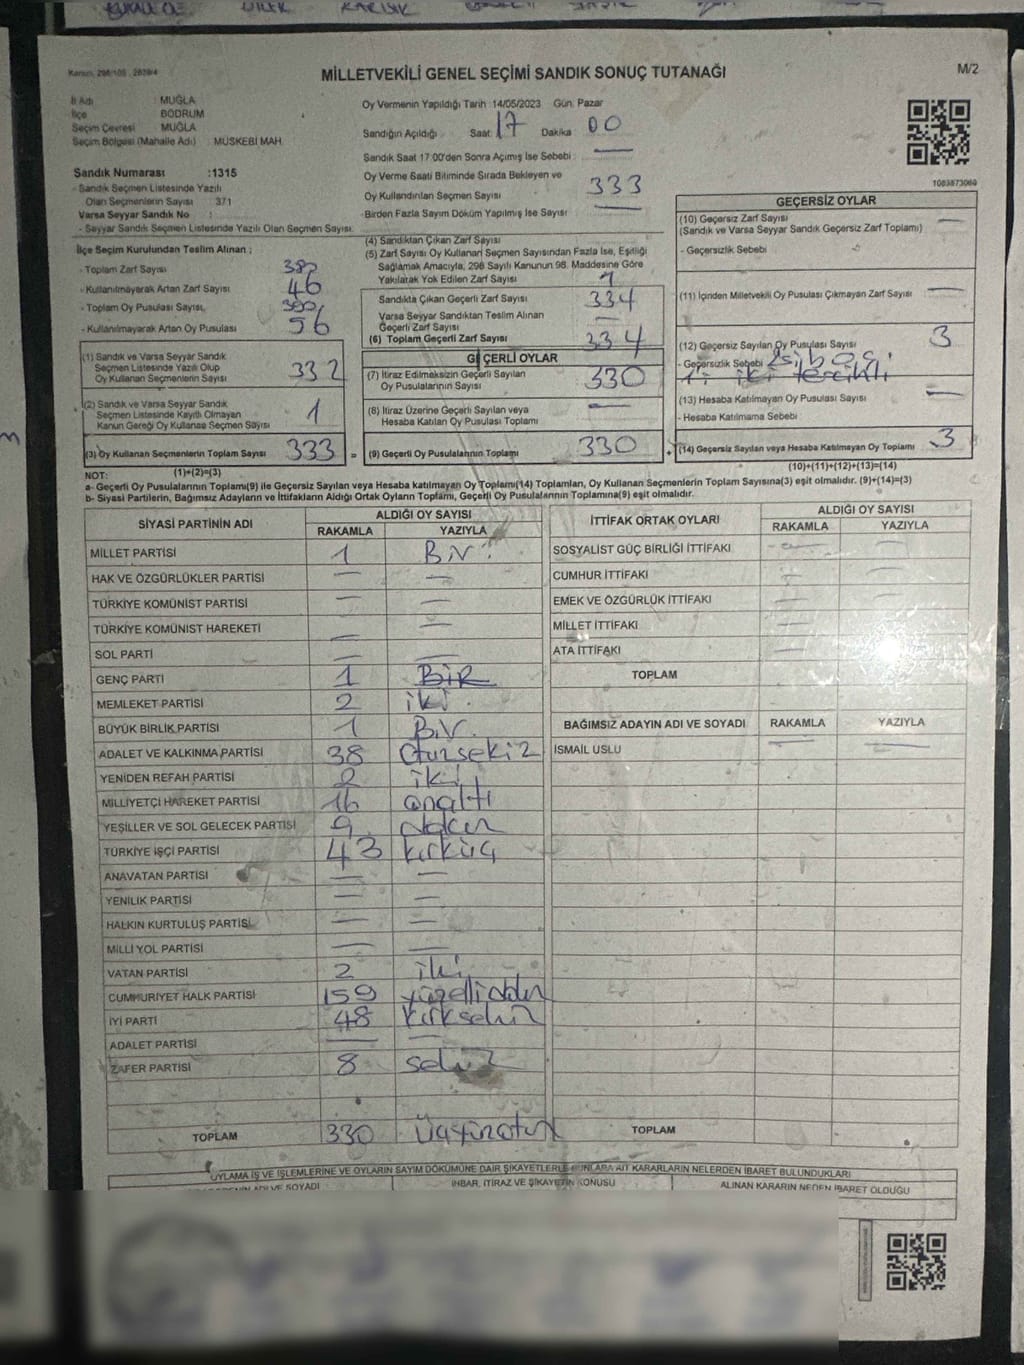 MİLLETVEKİLİ GENEL SEÇİMİ SANDIK SONUÇ TUTANAĞI
M/2
İl Adı : MUĞLA
İlçe BODRUM
Seçim Çevresi : MUĞLA
Seçim Bölgesi (Mahalle Adı) : MÜSKEBİ MAH.
Oy Vermenin Yapıldığı Tarih :14/05/2023 Gün: Pazar
Sandığın Açıldığı Saat: 17 Dakika 00
Sandık Saat 17:00'den Sonra Açımış İse Sebebi : —
Oy Verme Saati Bitiminde Sırada Bekleyen ve
Oy Kullandırılan Seçmen Sayısı 333
Birden Fazla Sayım Döküm Yapılmış İse Sayısı —
Sandık Numarası :1315
- Sandık Seçmen Listesinde Yazılı
Olan Seçmenlerin Sayısı 371
Varsa Seyyar Sandık No :
- Seyyar Sandık Seçmen Listesinde Yazılı Olan Seçmen Sayısı:
İlçe Seçim Kurulundan Teslim Alınan ;
- Toplam Zarf Sayısı
- Kullanılmayarak Artan Zarf Sayısı 46
- Toplam Oy Pusulası Sayısı,
- Kullanılmayarak Artan Oy Pusulası 56
(1) Sandık ve Varsa Seyyar Sandık
Seçmen Listesinde Yazılı Olup
Oy Kullanan Seçmenlerin Sayısı 332
(2) Sandık ve Varsa Seyyar Sandık
Seçmen Listesinde Kayıtlı Olmayan
Kanun Gereği Oy Kullanan Seçmen Sayısı 1
(3) Oy Kullanan Seçmenlerin Toplam Sayısı 333
(1)+(2)=(3)
(4) Sandıktan Çıkan Zarf Sayısı
(5) Zarf Sayısı Oy Kullanan Seçmen Sayısından Fazla İse, Eşitliği
Sağlamak Amacıyla, 298 Sayılı Kanunun 98. Maddesine Göre
Yakılarak Yok Edilen Zarf Sayısı 1
Sandıkta Çıkan Geçerli Zarf Sayısı 334
Varsa Seyyar Sandıktan Teslim Alınan
Geçerli Zarf Sayısı —
(6) Toplam Geçerli Zarf Sayısı 334
GEÇERLİ OYLAR
(7) İtiraz Edilmeksizin Geçerli Sayılan
Oy Pusulalarının Sayısı 330
(8) İtiraz Üzerine Geçerli Sayılan veya
Hesaba Katılan Oy Pusulası Toplamı —
= (9) Geçerli Oy Pusulalarının Toplamı 330
1083873069
GEÇERSİZ OYLAR
(10) Geçersiz Zarf Sayısı —
(Sandık ve Varsa Seyyar Sandık Geçersiz Zarf Toplamı)
- Geçersizlik Sebebi
(11) İçinden Milletvekili Oy Pusulası Çıkmayan Zarf Sayısı —
(12) Geçersiz Sayılan Oy Pusulası Sayısı 3
- Geçersizlik Sebebi 2si boş,
1i iki tercihli
(13) Hesaba Katılmayan Oy Pusulası Sayısı —
- Hesaba Katılmama Sebebi
+ (14) Geçersiz Sayılan veya Hesaba Katılmayan Oy Toplamı 3
(10)+(11)+(12)+(13)=(14)
NOT:
a- Geçerli Oy Pusulalarının Toplamı(9) ile Geçersiz Sayılan veya Hesaba katılmayan Oy Toplamı(14) Toplamları, Oy Kullanan Seçmenlerin Toplam Sayısına(3) eşit olmalıdır. (9)+(14)=(3)
b- Siyasi Partilerin, Bağımsız Adayların ve İttifakların Aldığı Ortak Oyların Toplamı, Geçerli Oy Pusulalarının Toplamına(9) eşit olmalıdır.
SİYASİ PARTİNİN ADI ALDIĞI OY SAYISI
RAKAMLA YAZIYLA
MİLLET PARTİSİ 1 Bir
HAK VE ÖZGÜRLÜKLER PARTİSİ — —
TÜRKİYE KOMÜNİST PARTİSİ — —
TÜRKİYE KOMÜNİST HAREKETİ — —
SOL PARTİ — —
GENÇ PARTİ 1 BİR
MEMLEKET PARTİSİ 2 iki
BÜYÜK BİRLİK PARTİSİ 1 Bir
ADALET VE KALKINMA PARTİSİ 38 Otuzsekiz
YENİDEN REFAH PARTİSİ 2 iki
MİLLİYETÇİ HAREKET PARTİSİ 16 onaltı
YEŞİLLER VE SOL GELECEK PARTİSİ 9 dokuz
TÜRKİYE İŞÇİ PARTİSİ 43 kırküç
ANAVATAN PARTİSİ — —
YENİLİK PARTİSİ — —
HALKIN KURTULUŞ PARTİSİ — —
MİLLİ YOL PARTİSİ — —
VATAN PARTİSİ 2 iki
CUMHURİYET HALK PARTİSİ 159 yüzellidokuz
İYİ PARTİ 48 kırksekiz
ADALET PARTİSİ — —
ZAFER PARTİSİ 8 sekiz
TOPLAM 330 Üçyüzotuz
İTTİFAK ORTAK OYLARI ALDIĞI OY SAYISI
RAKAMLA YAZIYLA
SOSYALİST GÜÇ BİRLİĞİ İTTİFAKI — —
CUMHUR İTTİFAKI — —
EMEK VE ÖZGÜRLÜK İTTİFAKI — —
MİLLET İTTİFAKI — —
ATA İTTİFAKI — —
TOPLAM
BAĞIMSIZ ADAYIN ADI VE SOYADI RAKAMLA YAZIYLA
İSMAİL USLU — —
TOPLAM
OYLAMA İŞ VE İŞLEMLERİNE VE OYLARIN SAYIM DÖKÜMÜNE DAİR ŞİKAYETLERLE BUNLARA AİT KARARLARIN NELERDEN İBARET BULUNDUKLARI
ADI VE SOYADI
İHBAR, İTİRAZ VE ŞİKAYETİN KONUSU
ALINAN KARARIN NEDEN İBARET OLDUĞU